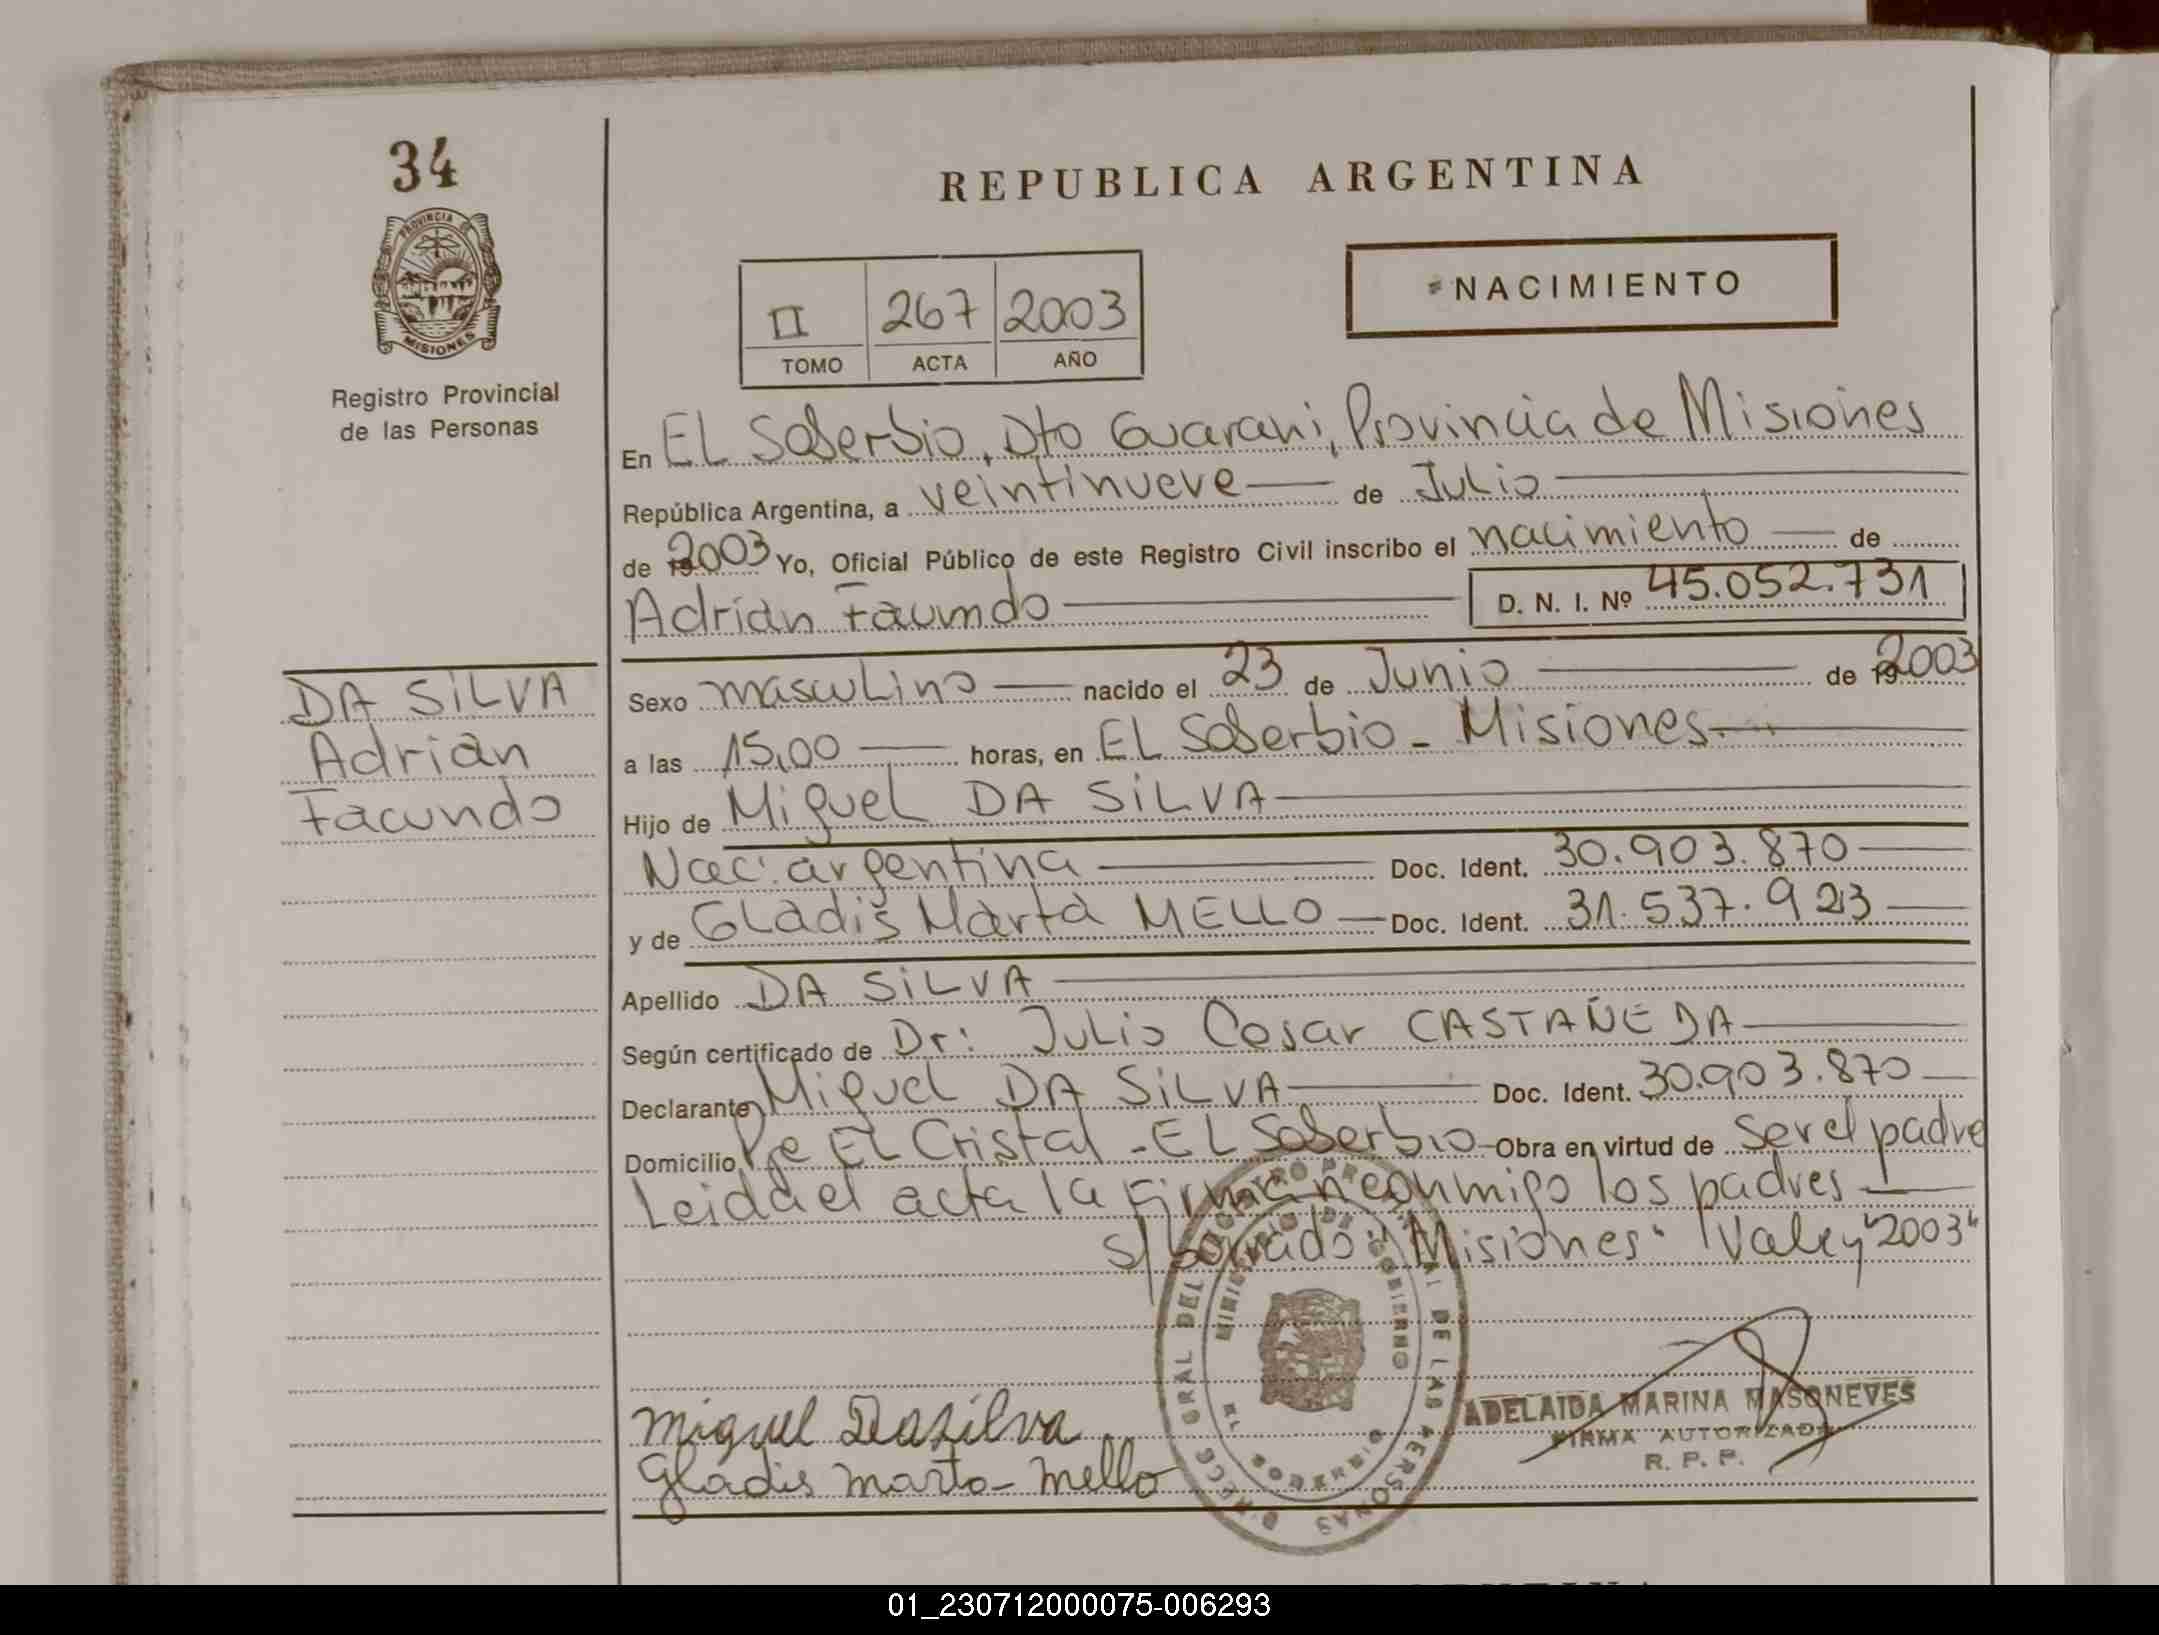 34
PROVINCIA DE
MISIONES
Registro Provincial
de las Personas
REPUBLICA ARGENTINA
II 267 2003
TOMO ACTA AÑO
NACIMIENTO
En EL Soberbio, Dto Guarani, Provincia de Misiones
República Argentina, a veintinueve de Julio
de 2003 Yo, Oficial Público de este Registro Civil inscribo el nacimiento de
Adrian Facundo D. N. I. Nº 45.052.731
DA SiLVA
Adrian
Facundo
Sexo mascuLino nacido el 23 de Junio de 2003
a las 15,00 horas, en EL Soberbio - Misiones
Hijo de Miguel DA SiLVA
Nac: argentina Doc. Ident. 30.903.870
y de GLadis Marta MELLO Doc. Ident. 31.537.923
Apellido DA SiLVA
Según certificado de Dr: JuLio Cesar CASTAÑEDA
Declarante Miguel DA SiLVA Doc. Ident. 30.903.870
Domicilio Pje EL Cristal - EL Soberbio Obra en virtud de ser el padre
Leida el acta la Firman conmigo los padres
s/borrado: "Misiones" Vale y "2003"
Miguel Dasilva
Gladis marta mello
DIRECC GRAL DEL REGISTRO PROVINCIAL DE LAS PERSONAS
MINISTERIO DE GOBIERNO
EL SOBERBIO
ADELAIDA MARINA MASONEVES
FIRMA AUTORIZADA
R. P. P.
01_230712000075-006293